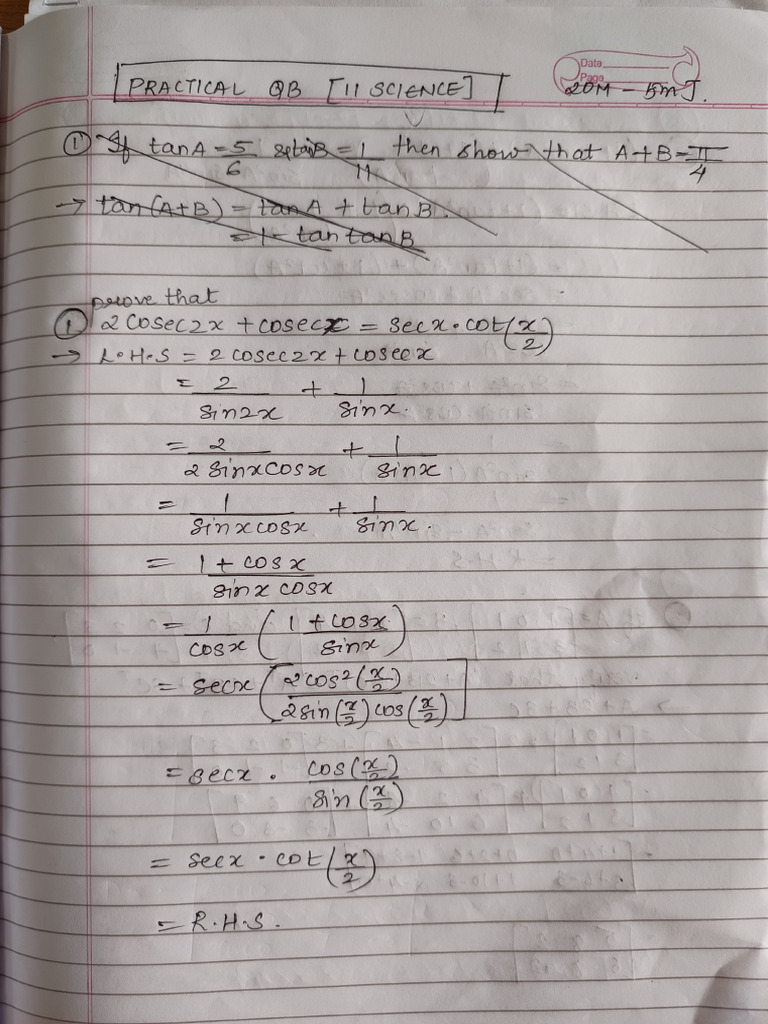 PRACTICAL QB [11 SCIENCE]
Date
Page
20M - 5m J.
① If tanA = 5/6 & tanB = 1/11 then show that A+B = π/4
→ tan(A+B) = tanA + tanB.
= 1 - tan tanB
prove that
① 2cosec2x + cosecx = secx · cot(x/2)
→ L.H.S = 2cosec2x + cosecx
= 2/sin2x + 1/sinx.
= 2/2sinxcosx + 1/sinx.
= 1/sinxcosx + 1/sinx.
= 1 + cosx/sinx cosx
= 1/cosx (1 + cosx/sinx)
= secx [2cos²(x/2)/2sin(x/2)cos(x/2)]
= secx . cos(x/2)/sin(x/2)
= secx · cot(x/2)
= R.H.S.